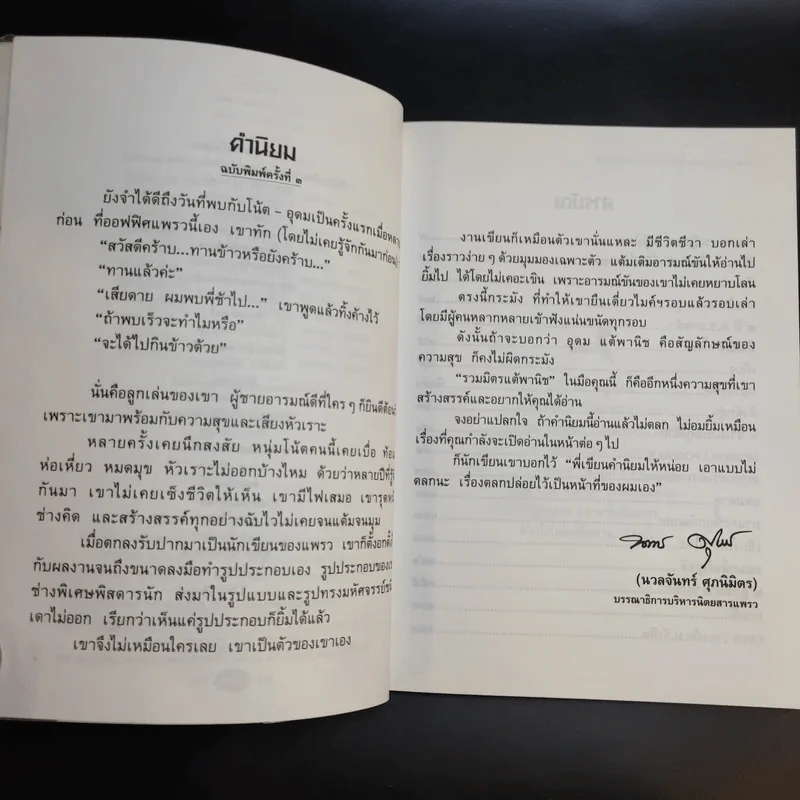 คำนิยม
ฉบับพิมพ์ครั้งที่ ๓
ยังจำได้ดีถึงวันที่พบกับโน้ต – อุดมเป็นครั้งแรกเมื่อ
ก่อน ที่ออฟฟิศแพรวนี้เอง เขาทัก (โดยไม่เคยรู้จักกันมาก่อน)
“สวัสดีคร้าบ...ทานข้าวหรือยังคร้าบ...”
“ทานแล้วค่ะ”
“เสียดาย ผมพบพี่ช้าไป...” เขาพูดแล้วทิ้งค้างไว้
“ถ้าพบเร็วจะทำไมหรือ”
“จะได้ไปกินข้าวด้วย”
นั่นคือลูกเล่นของเขา ผู้ชายอารมณ์ดีที่ใครๆ ก็ยินดีต้อน
เพราะเขามาพร้อมกับความสุขและเสียงหัวเราะ
หลายครั้งเคยนึกสงสัย หนุ่มโน้ตคนนี้เคยเบื่อ ท้อ
ห่อเหี่ยว หมดมุข หัวเราะไม่ออกบ้างไหม ด้วยว่าหลายปีที่รู้
กันมา เขาไม่เคยเซ็งชีวิตให้เห็น เขามีไฟเสมอ เขารุด
ช่างคิด และสร้างสรรค์ทุกอย่างฉับไวไม่เคยจนแต้มจนมุม
เมื่อตกลงรับปากมาเป็นนักเขียนของแพรว เขาก็ตั้งอก
กับผลงานจนถึงขนาดลงมือทำรูปประกอบเอง รูปประกอบของ
ช่างพิเศษพิสดารนัก ส่งมาในรูปแบบและรูปทรงมหัศจรรย์
เดาไม่ออก เรียกว่าเห็นแค่รูปประกอบก็ยิ้มได้แล้ว
เขาจึงไม่เหมือนใครเลย เขาเป็นตัวของเขาเอง
งานเขียนก็เหมือนตัวเขานั่นแหละ มีชีวิตชีวา บอกเล่า
เรื่องราวง่ายๆ ด้วยมุมมองเฉพาะตัว แต้มเติมอารมณ์ขันให้อ่านไป
ยิ้มไป ได้โดยไม่เคอะเขิน เพราะอารมณ์ขันของเขาไม่เคยหยาบโลน
ตรงนี้กระมัง ที่ทำให้เขายืนเดี่ยวไมค์ฯรอบแล้วรอบเล่า
โดยมีผู้คนหลากหลายเข้าฟังแน่นขนัดทุกรอบ
ดังนั้นถ้าจะบอกว่า อุดม แต้พานิช คือสัญลักษณ์ของ
ความสุข ก็คงไม่ผิดกระมัง
“รวมมิตรแต้พานิช” ในมือคุณนี้ ก็คืออีกหนึ่งความสุขที่เขา
สร้างสรรค์และอยากให้คุณได้อ่าน
จงอย่าแปลกใจ ถ้าคำนิยมนี้อ่านแล้วไม่ตลก ไม่อมยิ้มเหมือน
เรื่องที่คุณกำลังจะเปิดอ่านในหน้าต่อๆ ไป
ก็นักเขียนเขาบอกไว้ “พี่เขียนคำนิยมให้หน่อย เอาแบบไม่
ตลกนะ เรื่องตลกปล่อยไว้เป็นหน้าที่ของผมเอง”
(นวลจันทร์ ศุภนิมิตร)
บรรณาธิการบริหารนิตยสารแพรว